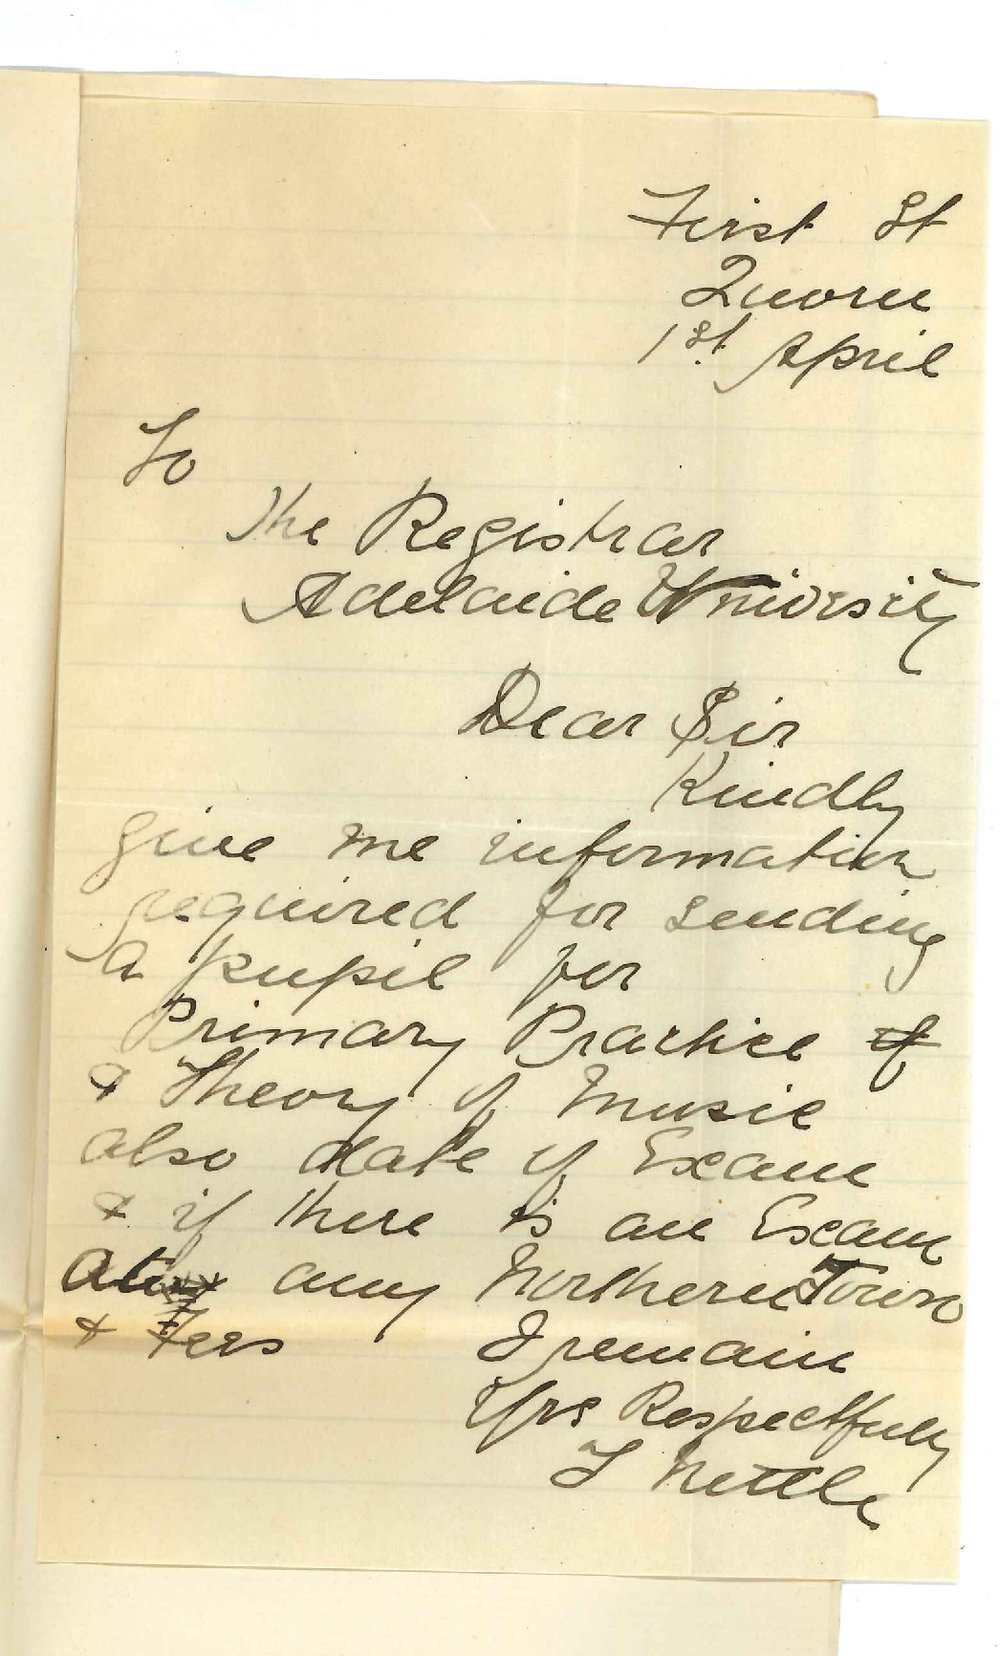 First St
Quorn
1st April
To
The Registrar
Adelaide University
Dear Sir
Kindly
give me information
required for sending
a pupil for
Primary Practice of
& Theory of Music
also date of Exam
& if there is an Exam
at any Northern Town
& Fees I remain
Yrs Respectfully
T Nettle